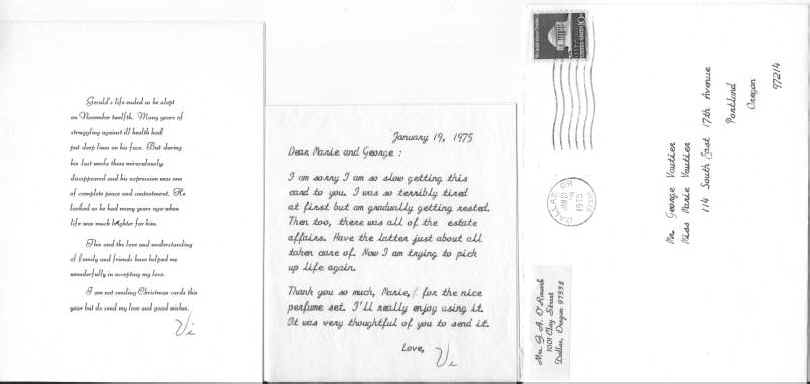 Gerald's life ended as he slept
on November twelfth. Many years of
struggling against ill health had
put deep lines on his face. But during
his last weeks these miraculously
disappeared and his expression was one
of complete peace and contentment. He
looked as he had many years ago when
life was much brighter for him.
This and the love and understanding
of family and friends have helped me
wonderfully in accepting my loss.
I am not sending Christmas cards this
year but do send my love and good wishes.
Vi
January 19, 1975
Dear Marie and George:
I am sorry I am so slow getting this
card to you. I was so terribly tired
at first but am gradually getting rested.
Then too, there was all of the estate
affairs. Have the latter just about all
taken care of. Now I am trying to pick
up life again.
Thank you so much, Marie, for the nice
perfume set. I'll really enjoy using it.
It was very thoughtful of you to send it.
Love, Vi
DALLAS OR
JAN 21
1975
Mr. George Vautier
Miss Marie Vautier
114 South East 17th Avenue
Portland
Oregon
97214
Mrs. G. A.
1001 Clay Street
Dallas, Oregon 97338